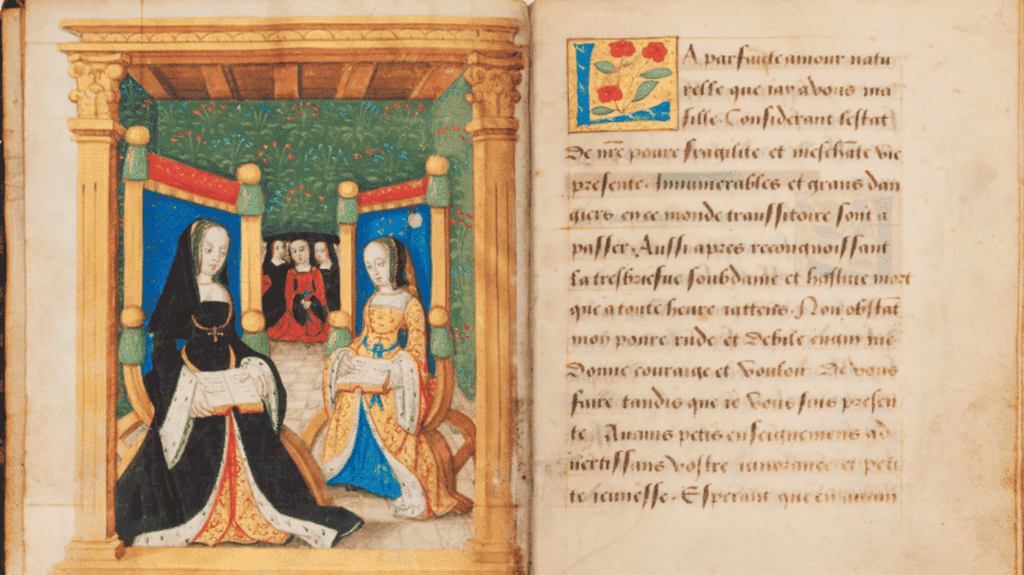 LA parfaicte amour natu
relle que iay a vous ma
fille. Considerant lestat
De nr̃e poure fragilite et mescħate vie
presente. Innumerables et grans dan
giers en ce monde transsitoire sont a
passer. Aussi apres recongnoissant
La tresbriefue soubdaine et hastiue mort
que a toute heure iattens. Non obstāt
mon poure rude et debile engin me
Donne couraige et vouloir De vous
faire tandis que ie vous suis presen
te Aucuns petis enseignemens ad
uertissans vostre ignorance et peti
te ieunesse. Esperant que en aucun